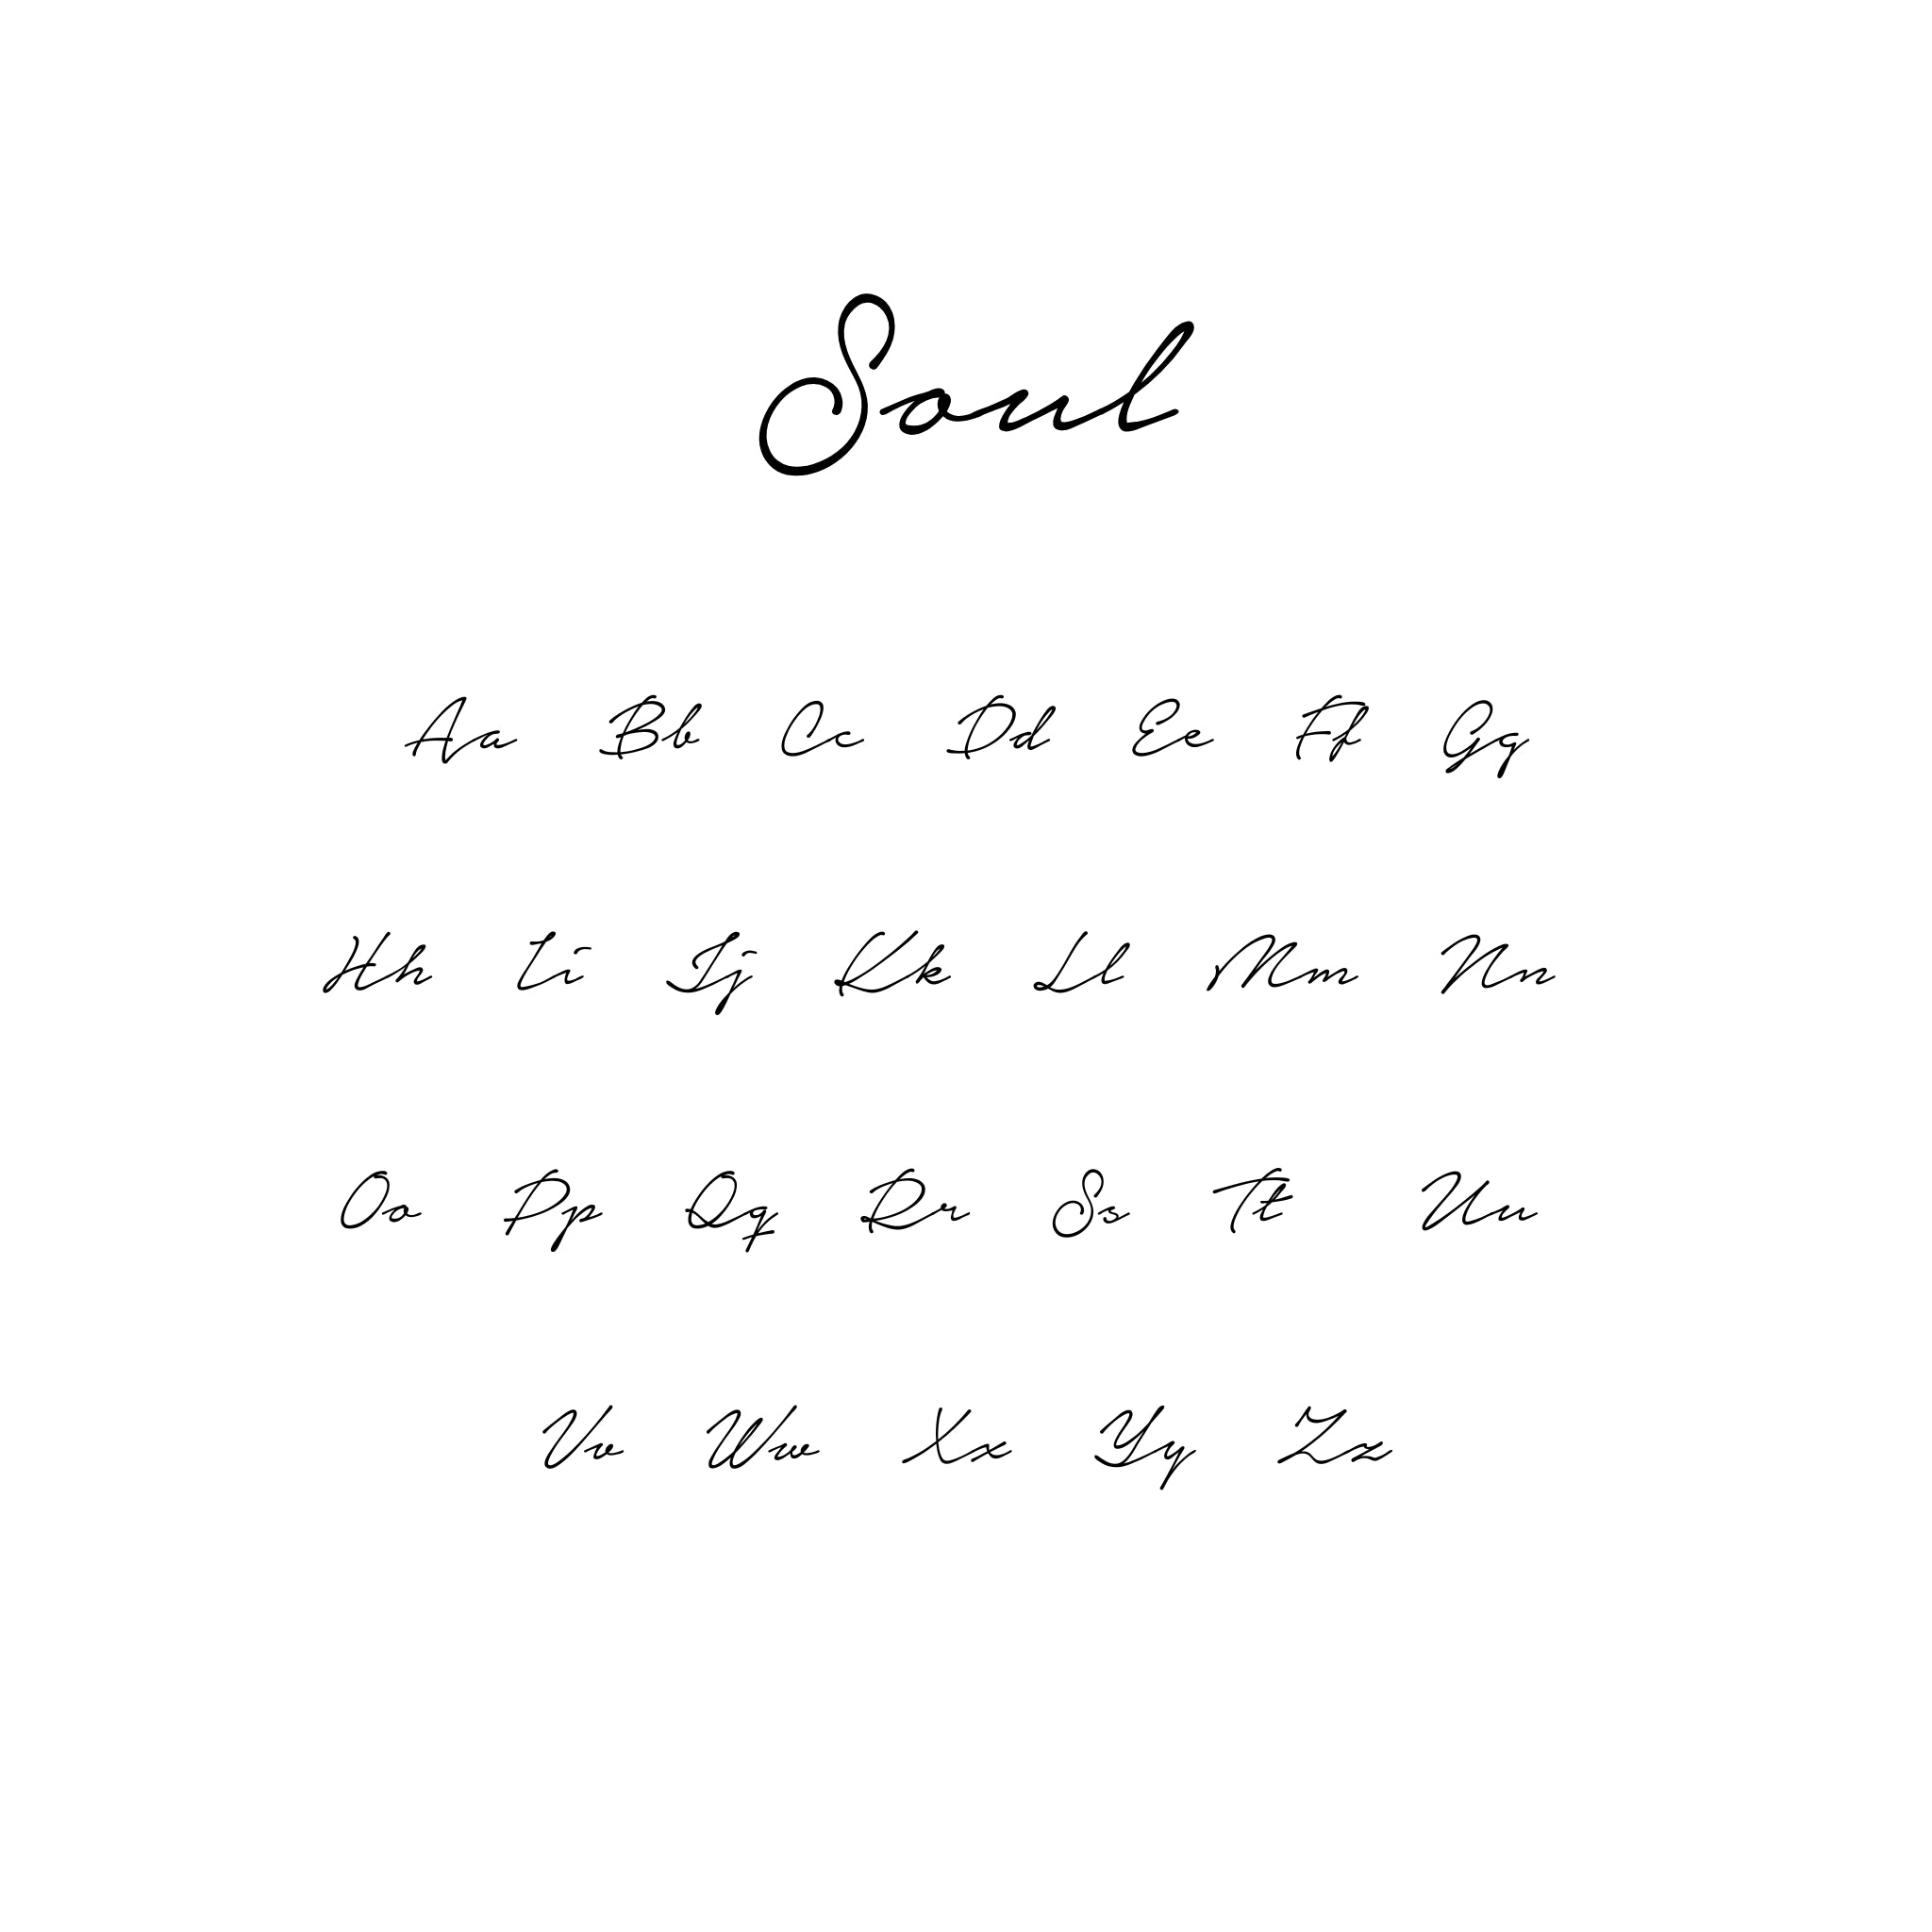 Soul
Aa Bb Cc Dd Ee Ff Gg
Hh Ii Jj Kk Ll Mm Nn
Oo Pp Qq Rr Ss Tt Uu
Vv Ww Xx Yy Zz